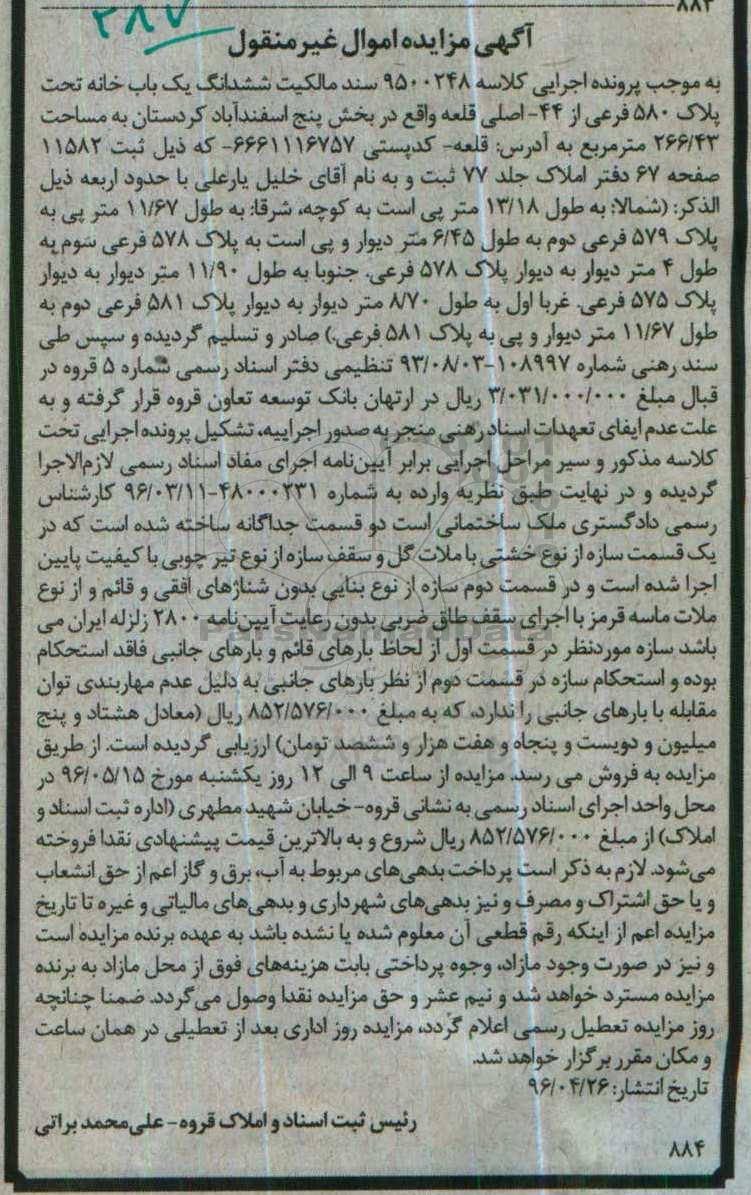 ۸۸۳
۲۸۷
آگهی مزایده اموال غیرمنقول
به موجب پرونده اجرایی کلاسه ۹۵۰۰۲۴۸ سند مالکیت ششدانگ یک باب خانه تحت
پلاک ۵۸۰ فرعی از ۴۴- اصلی قلعه واقع در بخش پنج اسفندآباد کردستان به مساحت
۲۶۶/۴۳ مترمربع به آدرس: قلعه- کدپستی ۶۶۶۱۱۱۶۷۵۷- که ذیل ثبت ۱۱۵۸۲
صفحه ۶۷ دفتر املاک جلد ۷۷ ثبت و به نام آقای خلیل یارعلی با حدود اربعه ذیل
الذکر: (شمالا: به طول ۱۳/۱۸ متر پی است به کوچه، شرقا: به طول ۱۱/۶۷ متر پی به
پلاک ۵۷۹ فرعی دوم به طول ۶/۴۵ متر دیوار و پی است به پلاک ۵۷۸ فرعی سوم به
طول ۴ متر دیوار به دیوار پلاک ۵۷۸ فرعی. جنوبا به طول ۱۱/۹۰ متر دیوار به دیوار
پلاک ۵۷۵ فرعی. غربا اول به طول ۸/۷۰ متر دیوار به دیوار پلاک ۵۸۱ فرعی دوم به
طول ۱۱/۶۷ متر دیوار و پی به پلاک ۵۸۱ فرعی.) صادر و تسلیم گردیده و سپس طی
سند رهنی شماره ۱۰۸۹۹۷-۹۳/۰۸/۰۳ تنظیمی دفتر اسناد رسمی شماره ۵ قروه در
قبال مبلغ ۳/۰۳۱/۰۰۰/۰۰۰ ریال در ارتهان بانک توسعه تعاون قروه قرار گرفته و به
علت عدم ایفای تعهدات اسناد رهنی منجر به صدور اجراییه، تشکیل پرونده اجرایی تحت
کلاسه مذکور و سیر مراحل اجرایی برابر آیین‌نامه اجرای مفاد اسناد رسمی لازم‌الاجرا
گردیده و در نهایت طبق نظریه وارده به شماره ۴۸۰۰۰۲۳۱-۹۶/۰۳/۱۱ کارشناس
رسمی دادگستری ملک ساختمانی است دو قسمت جداگانه ساخته شده است که در
یک قسمت سازه از نوع خشتی با ملات گل و سقف سازه از نوع تیر چوبی با کیفیت پایین
اجرا شده است و در قسمت دوم سازه از نوع بنایی بدون شناژهای افقی و قائم و از نوع
ملات ماسه قرمز با اجرای سقف طاق ضربی بدون رعایت آیین‌نامه ۲۸۰۰ زلزله ایران می
باشد سازه موردنظر در قسمت اول از لحاظ بارهای قائم و بارهای جانبی فاقد استحکام
بوده و استحکام سازه در قسمت دوم از نظر بارهای جانبی به دلیل عدم مهاربندی توان
مقابله با بارهای جانبی را ندارد، که به مبلغ ۸۵۲/۵۷۶/۰۰۰ ریال (معادل هشتاد و پنج
میلیون و دویست و پنجاه و هفت هزار و ششصد تومان) ارزیابی گردیده است. از طریق
مزایده به فروش می رسد. مزایده از ساعت ۹ الی ۱۲ روز یکشنبه مورخ ۹۶/۰۵/۱۵ در
محل واحد اجرای اسناد رسمی به نشانی قروه- خیابان شهید مطهری (اداره ثبت اسناد و
املاک) از مبلغ ۸۵۲/۵۷۶/۰۰۰ ریال شروع و به بالاترین قیمت پیشنهادی نقدا فروخته
می‌شود. لازم به ذکر است پرداخت بدهی‌های مربوط به آب، برق و گاز اعم از حق انشعاب
و یا حق اشتراک و مصرف و نیز بدهی‌های شهرداری و بدهی‌های مالیاتی و غیره تا تاریخ
مزایده اعم از اینکه رقم قطعی آن معلوم شده یا نشده باشد به عهده برنده مزایده است
و نیز در صورت وجود مازاد، وجوه پرداختی بابت هزینه‌های فوق از محل مازاد به برنده
مزایده مسترد خواهد شد و نیم عشر و حق مزایده نقدا وصول می‌گردد. ضمنا چنانچه
روز مزایده تعطیل رسمی اعلام گردد، مزایده روز اداری بعد از تعطیلی در همان ساعت
و مکان مقرر برگزار خواهد شد.
تاریخ انتشار: ۹۶/۰۴/۲۶
رئیس ثبت اسناد و املاک قروه - علی‌محمد براتی
۸۸۴